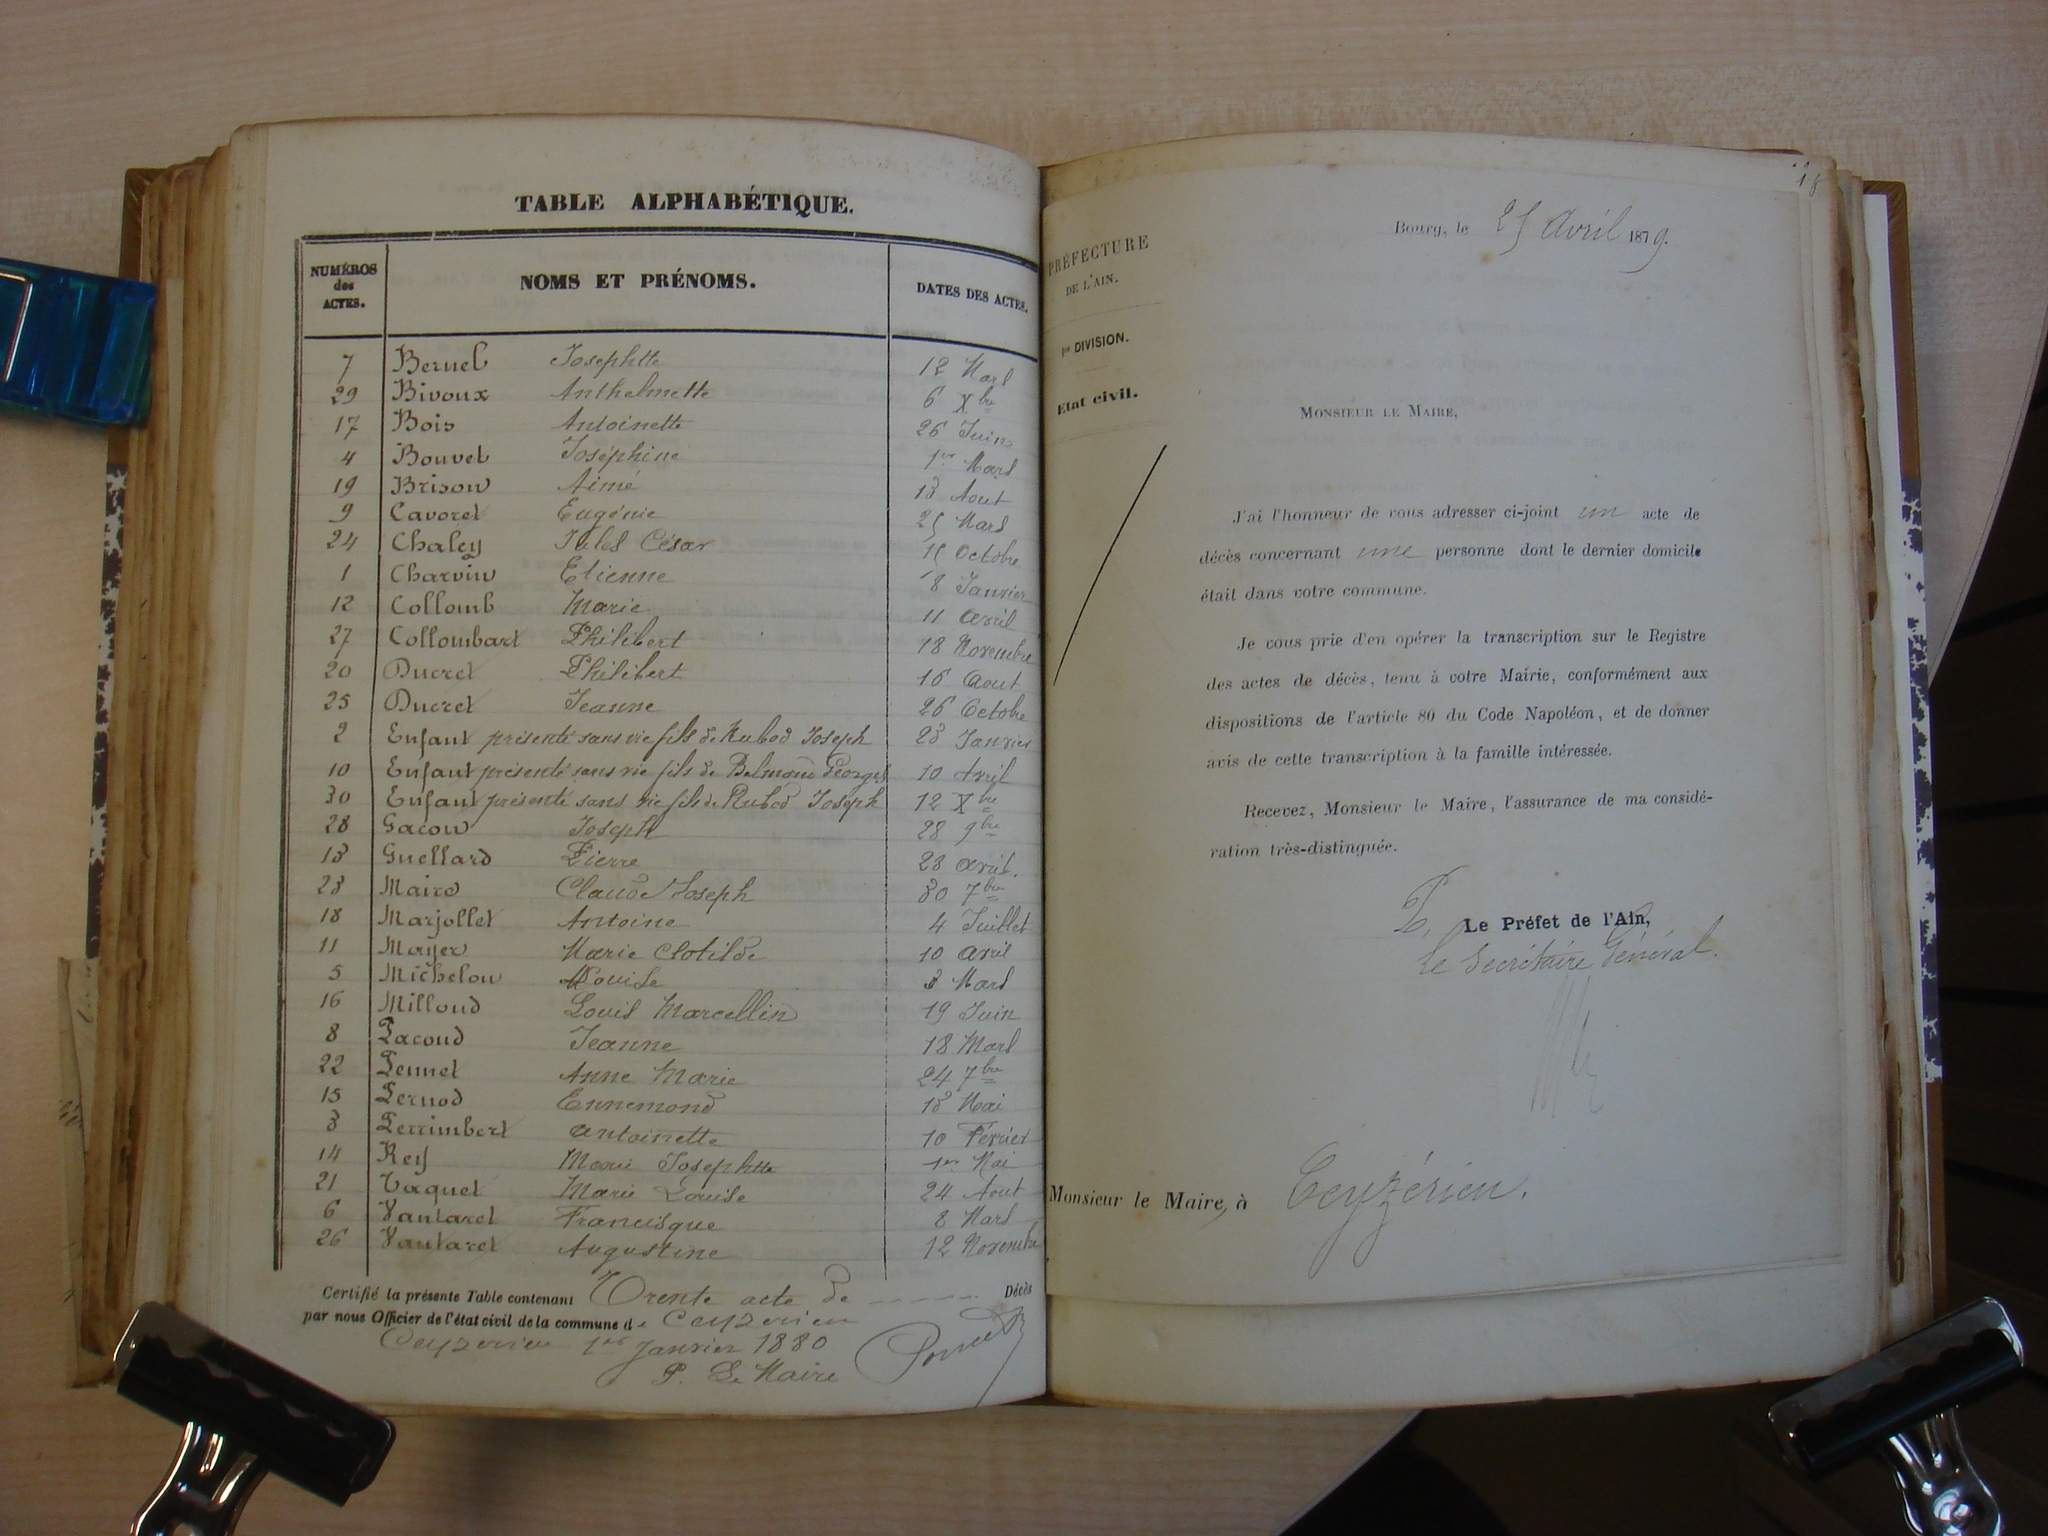 TABLE ALPHABÉTIQUE.
NUMÉROS des ACTES. NOMS ET PRÉNOMS. DATES DES ACTES.
7 Bernel Josephtte 12 Mars
29 Bivoux Anthelmette 6 Xbre
17 Bois Antoinette 26 Juin
4 Bouvet Joséphine 1er Mars
19 Brison Aimé 13 Aout
9 Cavoret Eugénie 25 Mars
24 Chaley Jules César 15 Octobre
1 Charvin Etienne 8 Janvier
12 Collomb Marie 11 avril
27 Collombart Philibert 18 Novembre
20 Ducret Philibert 16 aout
25 Ducret Jeanne 26 Octobre
2 Enfant présenté sans vie fils de Rubod Joseph 23 Janvier
10 Enfant présenté sans vie fils de Belmond Georges 10 Avril
30 Enfant présenté sans vie fils de Rubod Joseph 12 Xbre
28 Gacon Joseph 28 9bre
13 Guellard Pierre 23 avril.
23 Maire Claude Joseph 30 7bre
18 Marjollet Antoine 4 Juillet
11 Mayer Marie Clotilde 10 avril
5 Michelon Louise 3 Mars
16 Milloud Louis Marcellin 19 Juin
8 Pacoud Jeanne 18 Mars
22 Pennet Anne Marie 24 7bre
15 Pernod Ennemond 13 Mai
3 Perrimbert Antoinette 10 Février
14 Rey Marie Josephtte 1er Mai
21 Vaquet Marie Louise 24 Aout
6 Vautaret Francisque 8 Mars
26 Vautaret Augustine 12 Novembre
Certifié la présente Table contenant Trente acte de Décès
par nous Officier de l'état civil de la commune de Ceyzerieu
Ceyzerieu 1er Janvier 1880
P. Le Maire
18
Bourg, le 25 Avril 1879.
PRÉFECTURE
DE L'AIN.
1re DIVISION.
Etat civil.
MONSIEUR LE MAIRE,
J'ai l'honneur de vous adresser ci-joint un acte de
décès concernant une personne dont le dernier domicile
était dans votre commune.
Je vous prie d'en opérer la transcription sur le Registre
des actes de décès, tenu à votre Mairie, conformément aux
dispositions de l'article 80 du Code Napoléon, et de donner
avis de cette transcription à la famille intéressée.
Recevez, Monsieur le Maire, l'assurance de ma considé-
ration très-distinguée.
P. Le Préfet de l'Ain,
le Secrétaire Général.
Monsieur le Maire, à Ceyzérieu.